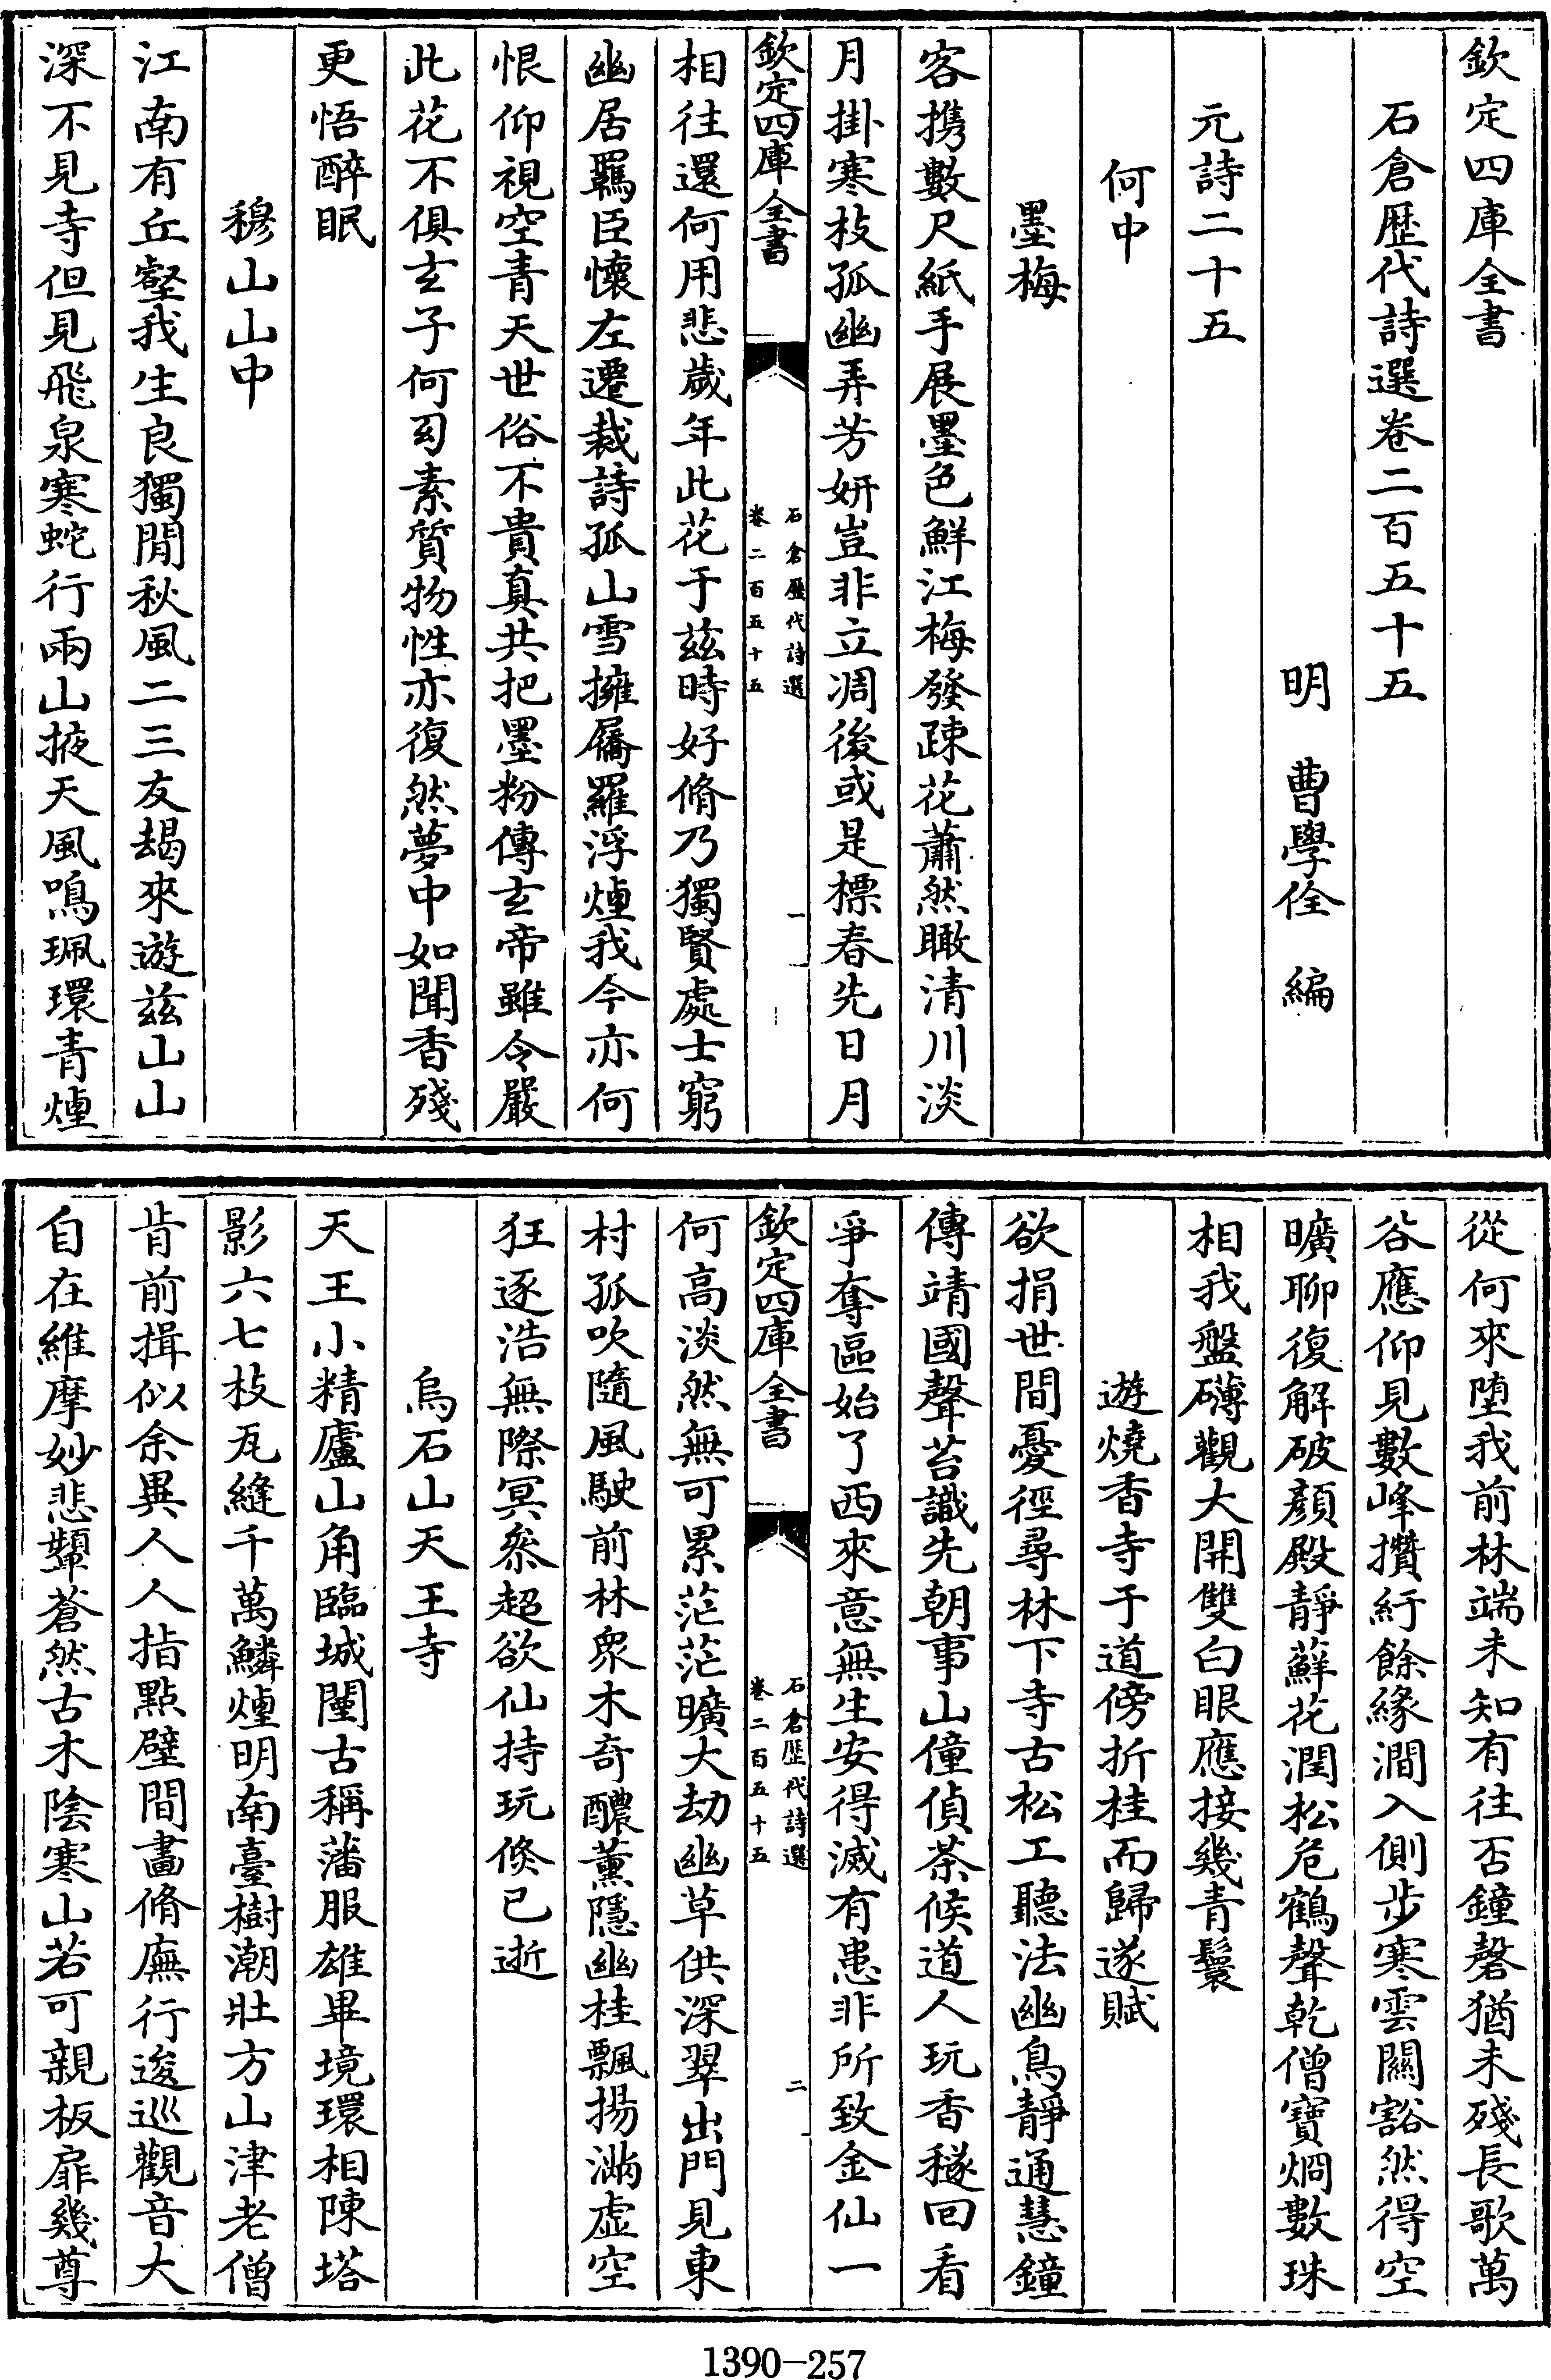 欽定四庫全書
石倉歴代詩選卷二百五十五
明　曹學佺　編
元詩二十五
何中
墨梅
客攜數尺紙手展墨色鮮江梅發疎花蕭然瞰清川淡
月掛寒枝孤幽弄芳妍豈非立凋後或是標春先日月
欽定四庫全書
石倉歴代詩選
卷二百五十五
一
相往還何用悲歲年此花于兹時好脩乃獨賢處士窮
幽居羈臣懷左遷裁詩孤山雪擁屩羅浮煙我今亦何
恨仰視空青天世俗不貴真共把墨粉傳玄帝雖令嚴
此花不俱玄子何匃素質物性亦復然夢中如聞香殘
更悟醉眠
穆山山中
江南有丘壑我生良獨閒秋風二三友朅來遊兹山山
深不見寺但見飛泉寒蛇行兩山掖天風鳴珮環青煙
從何來堕我前林端未知有往否鐘磬猶未殘長歌萬
谷應仰見數峰攢紆餘緣澗入側步寒雲關豁然得空
曠聊復解破顏殿靜蘚花潤松危鶴聲乾僧寶烱數珠
相我盤礴觀大開雙白眼應接幾青鬟
遊燒香寺于道傍折桂而歸遂賦
欲捐世間憂徑尋林下寺古松工聽法幽鳥靜通慧鐘
傳靖國聲苔識先朝事山僮偵茶候道人玩香穟回看
爭奪區始了西來意無生安得滅有患非所致金仙一
欽定四庫全書
石倉歴代詩選
卷二百五十五
二
何高淡然無可累茫茫曠大劫幽草供深翠出門見東
村孤吹隨風駛前林衆木奇醲薰隱幽桂飄揚滿虛空
狂逐浩無際冥叅超欲仙持玩倏已逝
烏石山天王寺
天王小精廬山角臨城闉古稱藩服雄畢境環相陳塔
影六七枝瓦縫千萬鱗煙明南臺樹潮壯方山津老僧
肯前揖似余異人人指點壁間畫脩廡行逡巡觀音大
自在維摩妙悲顰蒼然古木陰寒山若可親板扉幾尊
1390—257